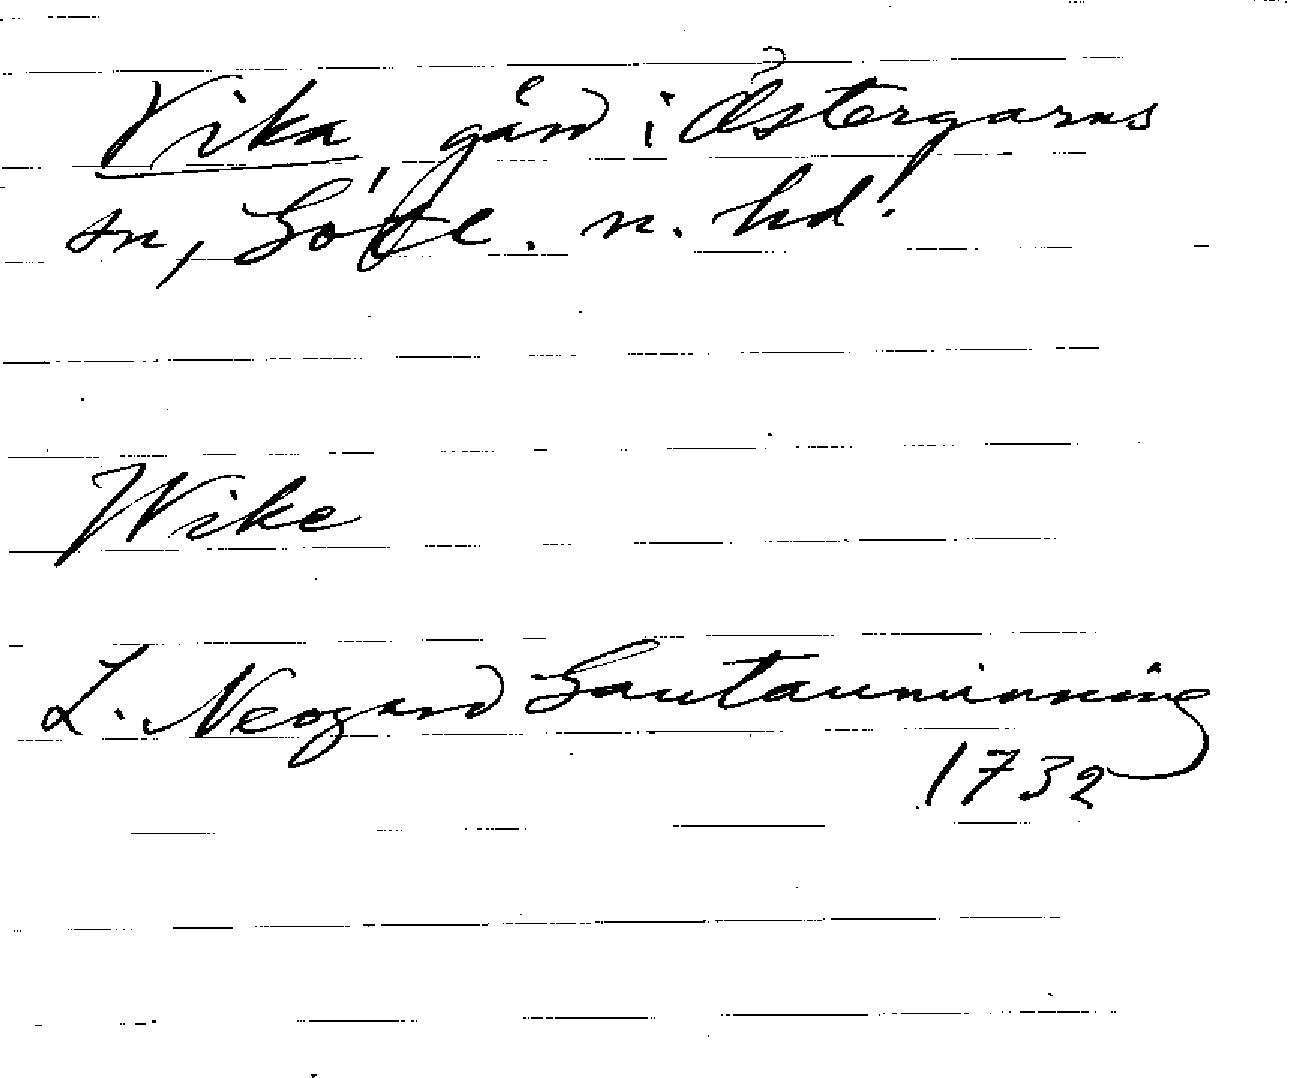 Vika, gård i Östergarns
sn, Gotl. n. hd.
Wike
L. Neogard Gautauminning
1732